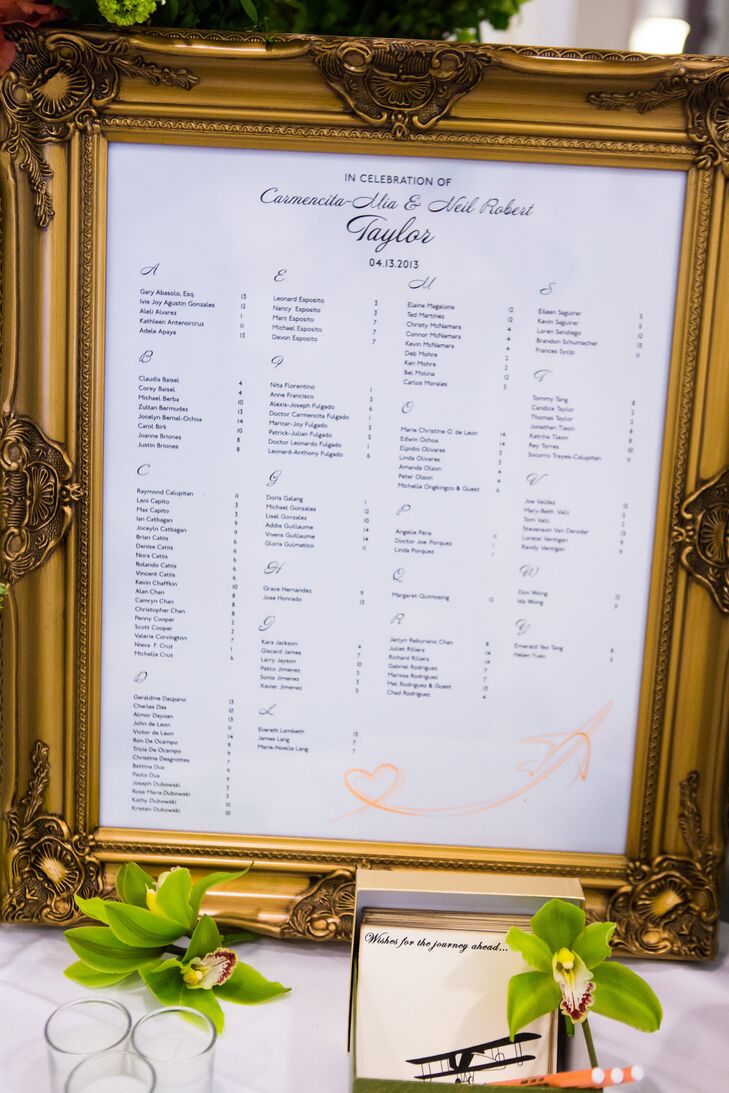 IN CELEBRATION OF
Carmencita-Mia & Neil Robert
Taylor
04.13.2013
A
Gary Abasolo, Esq 13
Ivie Joy Agustin Gonzales 12
Aleli Alvarez 1
Kathleen Antenorcruz 11
Adele Apaya 13
B
Claudia Baisel 4
Corey Baisel 4
Michael Berba 10
Zoltan Bermudez 13
Jocelyn Bernal-Ochoa 14
Carol Birk 10
Joanne Briones 8
Justin Briones 8
C
Raymond Calupitan 11
Leni Capito 3
Max Capito 3
Ian Catbagan 9
Joceyln Catbagan 9
Brian Catiis 6
Denise Catiis 6
Nora Catiis 6
Rolando Catiis 6
Vincent Catiis 6
Kevin Chaffkin 10
Alan Chan 8
Camryn Chan 8
Christopher Chan 8
Penny Cooper 2
Scott Cooper 2
Valerie Corvington 7
Nieva F. Cruz 1
Michelle Cruz 6
D
Geraldine Dacpano 13
Charles Das 10
Almor Dayoan 13
John de Leon 11
Victor de Leon 14
Ron De Ocampo 9
Tricia De Ocampo 9
Christina Desgrottes 7
Bettina Dua 9
Paolo Dua 9
Joseph Dubowski 3
Rose Maria Dubowski 3
Kathy Dubowski 10
Kristen Dubowski 10
E
Leonard Esposito 3
Nancy Esposito 3
Marc Esposito 7
Michael Esposito 7
Devon Esposito 7
F
Nita Florentino 1
Anne Francisco 5
Alexis-Joseph Fulgado 6
Doctor Carmencita Fulgado 1
Maricar-Joy Fulgado 5
Patrick-Julian Fulgado 5
Doctor Leonardo Fulgado 1
Leonard-Anthony Fulgado 6
G
Doris Galang 1
Michael Gonzales 12
Lisel Gonzalez 10
Addie Guillaume 14
Vivens Guillaume 14
Gloria Gulmatico 11
H
Grace Hernandez 9
Jose Honrado 12
J
Kara Jackson 4
Giscard James 7
Larry Jayson 10
Pablo Jimenez 3
Sonia Jimenez 3
Xavier Jimenez 5
L
Everett Lambeth 13
James Lang 7
Marie-Noelle Lang 7
M
Elaine Magalona 12
Ted Martinez 12
Christy McNamara 4
Connor McNamara 4
Kevin McNamara 4
Deb Mohre 2
Ken Mohre 2
Bel Molina 12
Carlos Morales 5
O
Marie Christine O. de Leon 14
Edwin Ochoa 14
Elpidio Olivares 3
Linda Olivares 3
Amanda Olson 4
Peter Olson 4
Michelle Ongkingco & Guest 6
P
Angelie Pena 11
Doctor Joe Porquez 1
Linda Porquez 1
Q
Margaret Quimosing 12
R
Jaclyn Raburiano Chan 8
Juliet Rillera 14
Richard Rillera 14
Gabriel Rodriguez 7
Marissa Rodriguez 7
Mel Rodriguez & Guest 13
Chad Rodriguez 4
S
Eileen Saguirer 5
Kevin Saguirer 5
Loren Sandiego 12
Brandon Schumacher 13
Frances Sycip 11
T
Tommy Tang 8
Candice Taylor 2
Thomas Taylor 2
Jonathan Tiaon 8
Katrina Tiaon 8
Ray Torres 10
Socorro Treyes-Calupitan 11
V
Joe Valdez 12
Mary-Beth Valli 2
Tom Valli 2
Stevenson Van Derodar 13
Lorelei Ventigan 9
Randy Ventigan 9
W
Don Wong 12
Ida Wong 5
Y
Emerald Yeo Tang 8
Helen Yuen 5
Wishes for the journey ahead...